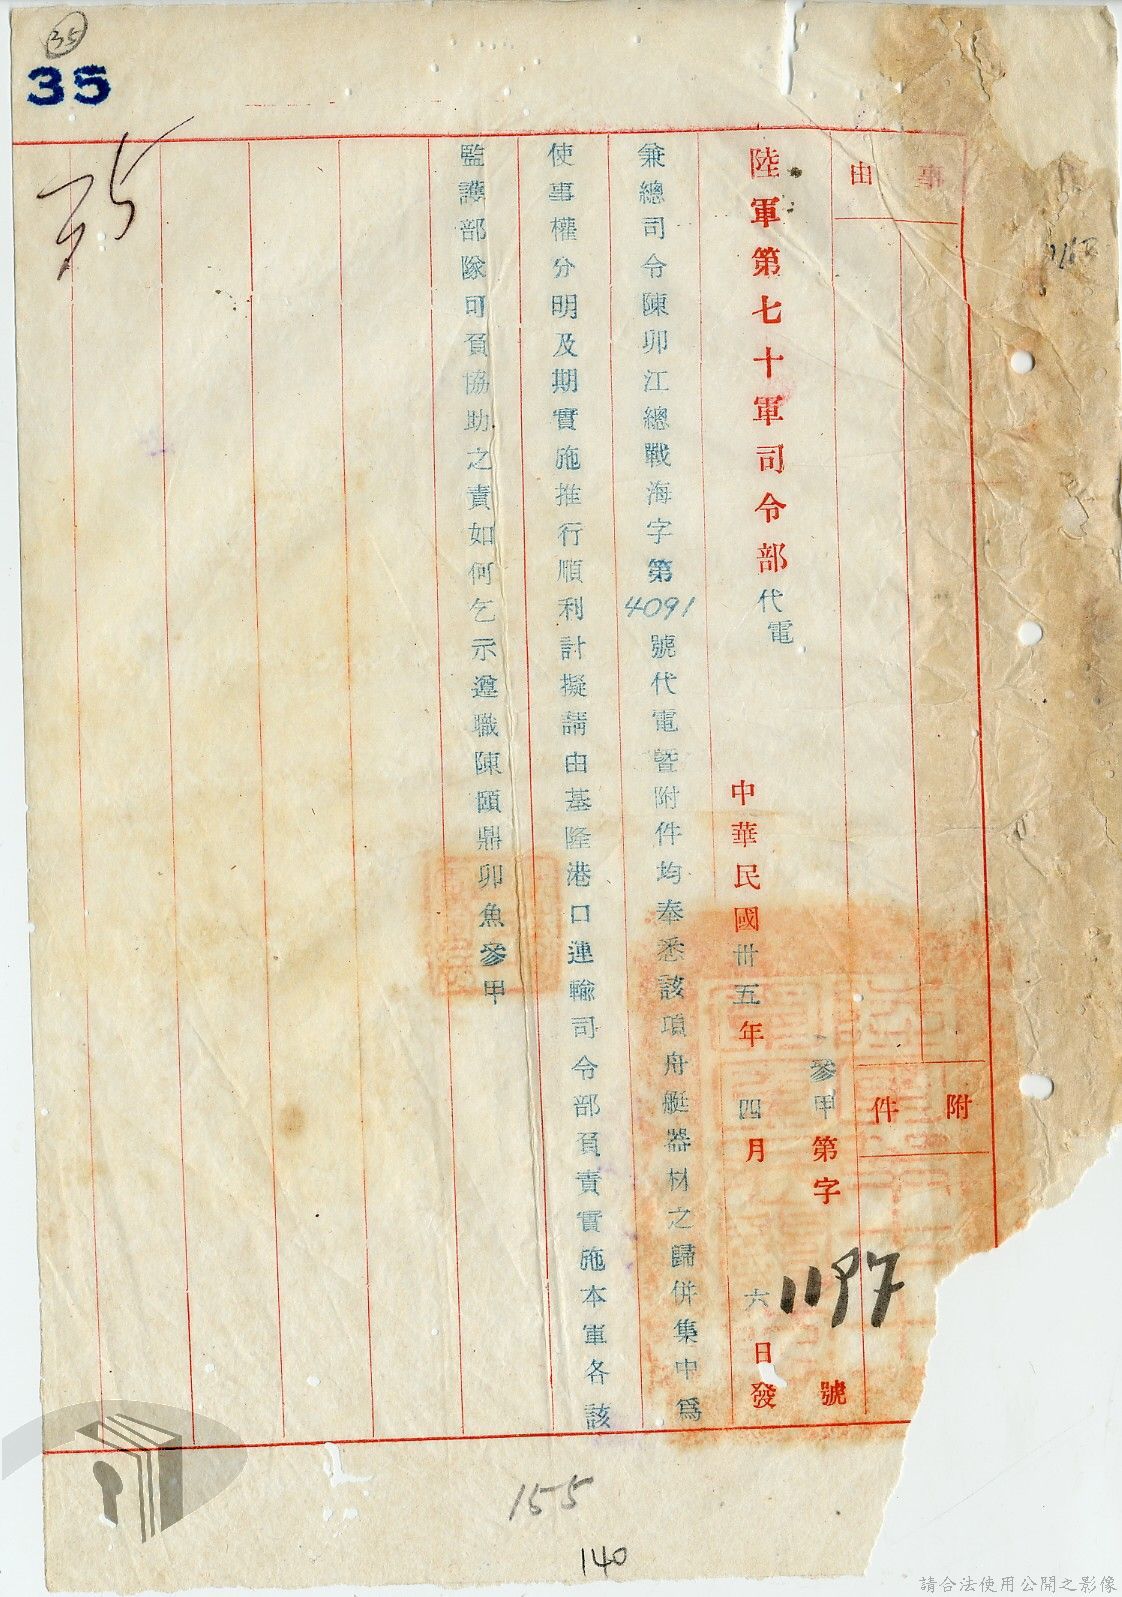 35
35
事由
附件
參甲第字號
陸軍第七十軍司令部代電
中華民國卅五年四月六日發
兼總司令陳卯江總戰海字第4091號代電暨附件均奉悉該項舟艇器材之歸併集中爲
使事權分明及期實施推行順利計擬請由基隆港口連輸司令部負責實施本軍各該
監護部隊可負協助之責如何乞示遵職陳頤鼎卯魚參甲
35
155
140
請合法使用公開之影像